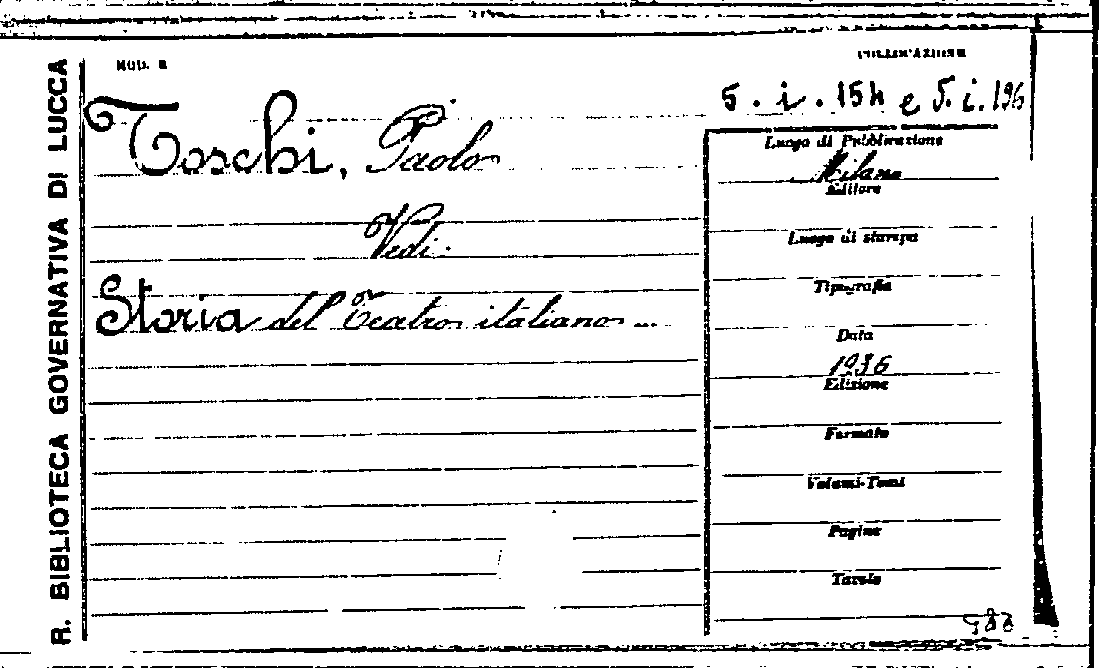 R. BIBLIOTECA GOVERNATIVA DI LUCCA
MOD. B
COLLOCAZIONE
5. i. 154 e 5. i. 196
Toschi, Paolo
Vedi:
Storia del Teatro italiano ...
Luogo di Pubblicazione
Milano
Editore
Luogo di stampa
Tipografia
Data
1936
Edizione
Formato
Volumi-Tomi
Pagine
Tavole